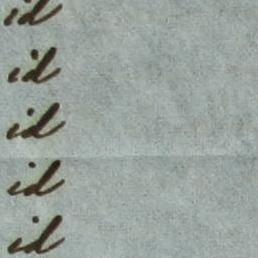 id
id
id
id
id